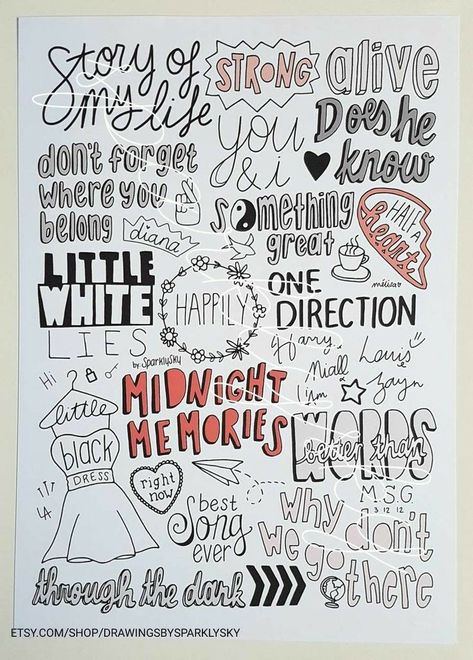 Story of
my life
STRONG
alive
you
& i
Does he
know
don't forget
where you
belong
diana
something
great
HALF A
heart
mélisa
LITTLE
WHITE
LIES
HAPPILY
by SparklySky
ONE
DIRECTION
Harry
Louis
Niall
Liam
Zayn
Hi
MIDNIGHT
MEMORIES
little
black
DRESS
LA
right
now
WORDS
better than
M.S.G
3 12 12
best
Song
ever
why
we don't
go there
through the dark
ETSY.COM/SHOP/DRAWINGSBYSPARKLYSKY